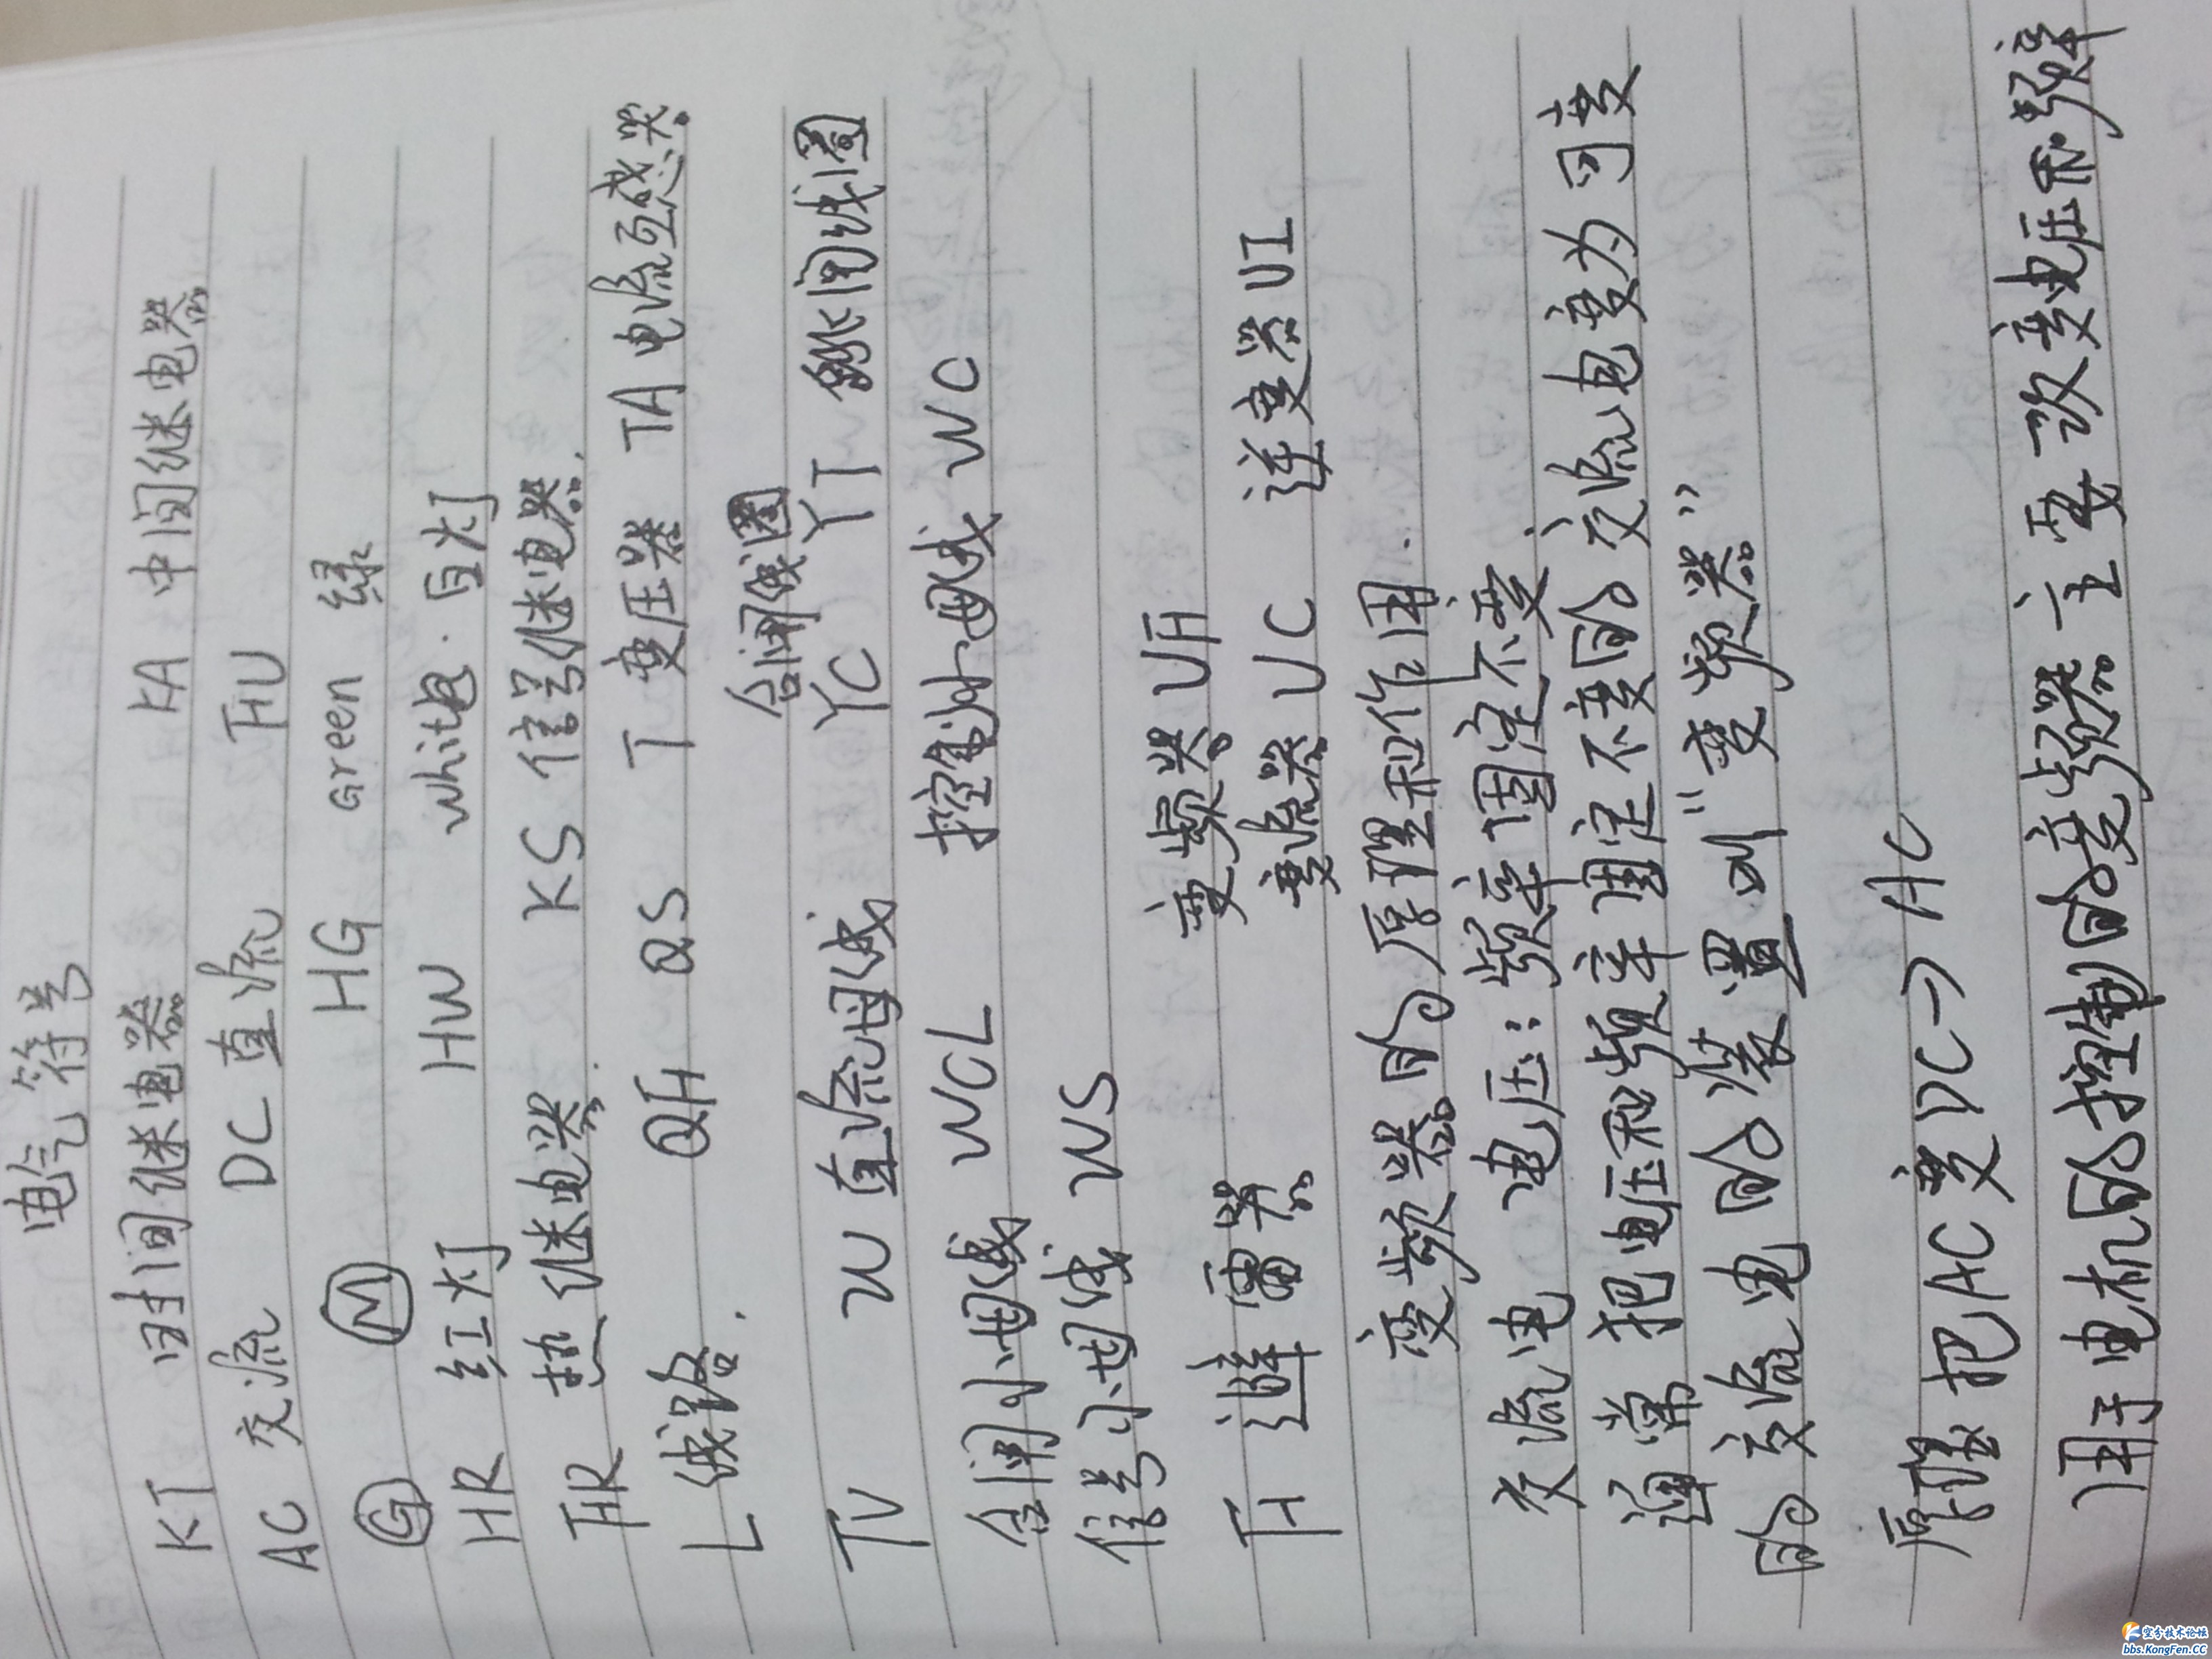 电气符号
KT 时间继电器 KA 中间继电器
AC 交流 DC 直流 FU
G M HG Green 绿
HR 红灯 HW white 白灯
FR 热继电器. KS 信号继电器.
L 线路. QF QS T 变压器 TA 电流互感器.
合闸线圈
TV W 直流母线 YC YT 跳闸线圈
合闸小母线 WCL 控制小母线 WC
信号小母线 WS
F 避雷器 变频器 UF
变流器 UC 逆变器 UI
变频器的原理和作用.
交流电 电压: 频率固定不变.
通常 把电压和频率固定不变的交流电变为可变
的交流电的装置叫"变频器"
原理 把AC变DC→AC
用于电机的控制的变频器主要改变电压和频率
空分技术论坛
bbs.KongFen.CC